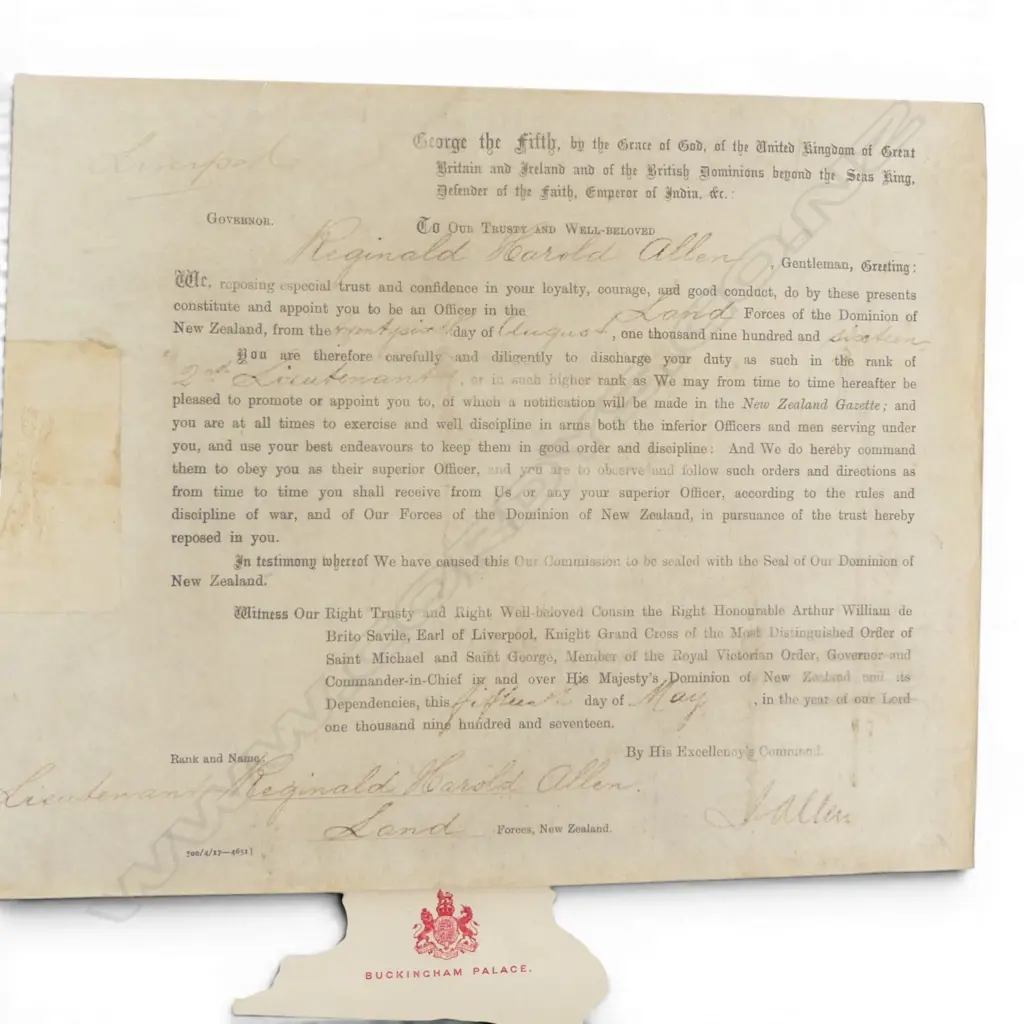 Liverpool
George the Fifth, by the Grace of God, of the United Kingdom of Great
Britain and Ireland and of the British Dominions beyond the Seas King,
Defender of the Faith, Emperor of India, &c.:
GOVERNOR.
To OUR TRUSTY AND WELL-BELOVED
Reginald Harold Allen, Gentleman, Greeting:
We, reposing especial trust and confidence in your loyalty, courage, and good conduct, do by these presents
constitute and appoint you to be an Officer in the Land Forces of the Dominion of
New Zealand, from the day of August, one thousand nine hundred and sixteen
You are therefore carefully and diligently to discharge your duty as such in the rank of
2nd Lieutenant, or in such higher rank as We may from time to time hereafter be
pleased to promote or appoint you to, of which a notification will be made in the New Zealand Gazette; and
you are at all times to exercise and well discipline in arms both the inferior Officers and men serving under
you, and use your best endeavours to keep them in good order and discipline: And We do hereby command
them to obey you as their superior Officer, and you are to observe and follow such orders and directions as
from time to time you shall receive from Us or any your superior Officer, according to the rules and
discipline of war, and of Our Forces of the Dominion of New Zealand, in pursuance of the trust hereby
reposed in you.
In testimony whereof We have caused this Our Commission to be sealed with the Seal of Our Dominion of
New Zealand.
Witness Our Right Trusty and Right Well-beloved Cousin the Right Honourable Arthur William de
Brito Savile, Earl of Liverpool, Knight Grand Cross of the Most Distinguished Order of
Saint Michael and Saint George, Member of the Royal Victorian Order, Governor and
Commander-in-Chief in and over His Majesty's Dominion of New Zealand and its
Dependencies, this fifteenth day of May, in the year of our Lord
one thousand nine hundred and seventeen.
By His Excellency's Command.
Rank and Name:
Lieutenant Reginald Harold Allen.
J Allen
Land Forces, New Zealand.
700/4/17—4651]
BUCKINGHAM PALACE.